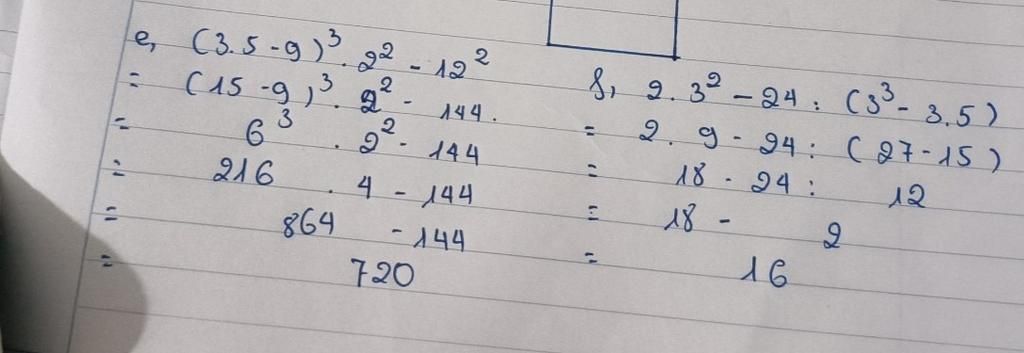 e, (3.5-9)³.2²-12²
= (15-9)³.2²-144.
= 6³.2²-144
= 216.4-144
= 864-144
= 720
f, 2.3²-24:(3³-3.5)
= 2.9-24:(27-15)
= 18-24:12
= 18-2
= 16